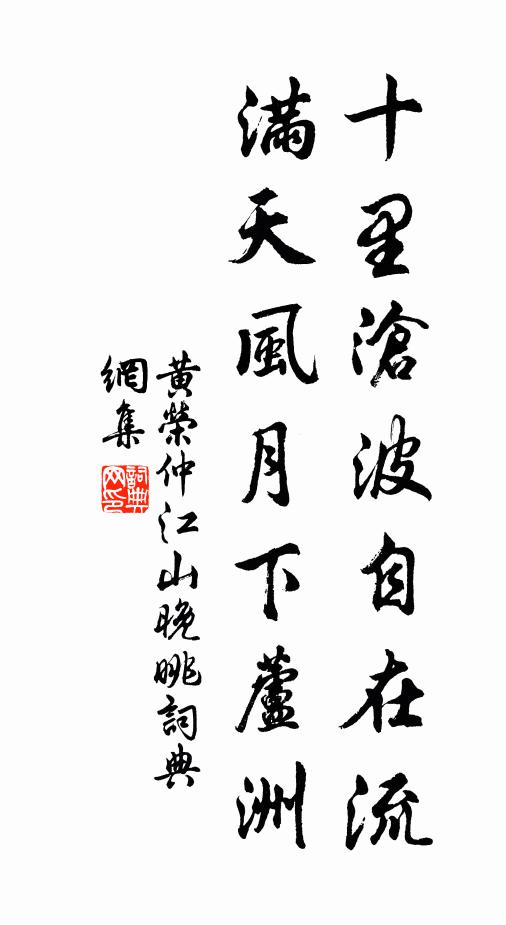 十里滄波自在流
滿天風月下蘆洲
黃榮仲江山晚眺詞典
網集
詞典
网印